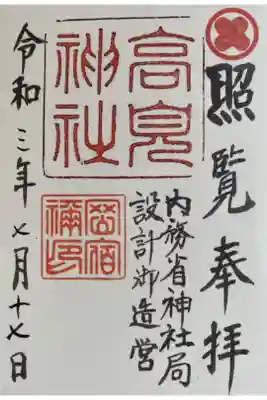 照覧奉拝
高見
神社
内務省神社局
設計御造営
宿
禰印
令和三年七月十七日